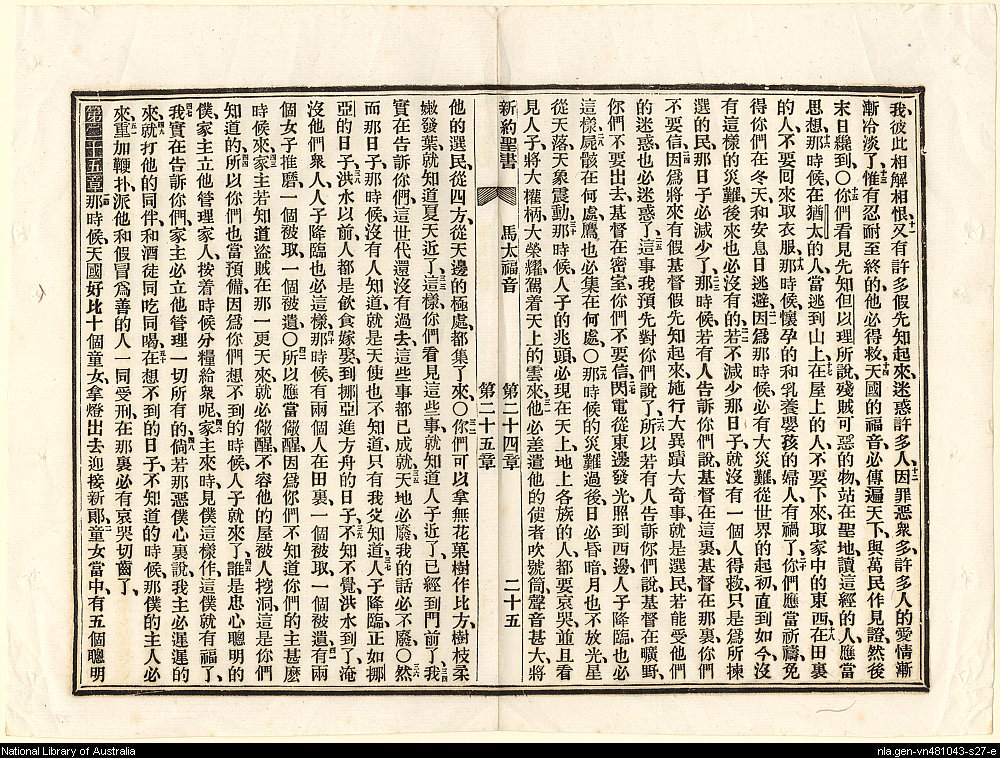 我、彼此相解相恨、十一又有許多假先知起來、迷惑許多人、十二因罪惡衆多、許多人的愛情漸
漸冷淡了、十三惟有忍耐至終的、他必得救、十四天國的福音、必傳遍天下、與萬民作見證、然後
末日纔到、〇十五你們看見先知但以理所說殘賊可惡的物、站在聖地、讀這經的人、應當
思想、十六那時候在猶太的人、當逃到山上、十七在屋上的人、不要下來取家中的東西、十八在田裏
的人、不要回來取衣服、十九那時候、懷孕的和乳養嬰孩的婦人有禍了、二十你們應當祈禱、免
得你們在冬天和安息日逃避、二一因爲那時候、必有大災難、從世界的起初、直到如今、沒
有這樣的災難、後來也必沒有的、二二若不減少那日子、就沒有一個人得救、只是爲所揀
選的民、那日子必減少了、二三那時候若有人告訴你們說、基督在這裏、基督在那裏、你們
不要信、二四因爲將來有假基督假先知起來、施行大異蹟大奇事、就是選民、若能受他們
的迷惑、也必迷惑了、二五這事我預先對你們說了、二六所以若有人告訴你們說、基督在曠野、
你們不要出去、基督在密室、你們不要信、二七閃電從東邊發光、照到西邊、人子降臨也必
這樣、二八屍骸在何處、鷹也必集在何處、〇二九那時候的災難過後、日必昏暗、月也不放光、星
從天落、天象震動、三十那時候、人子的兆頭、必現在天上、地上各族的人、都要哀哭、並且看
見人子將大權柄大榮耀、駕着天上的雲來、三一他必差遣他的使者、吹號筒、聲音甚大、將
新約聖書 馬太福音 第二十四章 第二十五章 二十五
他的選民、從四方、從天邊的極處、都集了來、〇三二你們可以拿無花菓樹作比方、樹枝柔
嫩發葉、就知道夏天近了、三三這樣、你們看見這些事、就知道人子近了、已經到門前了、三四我
實在告訴你們、這世代還沒有過去、這些事都已成就、三五天地必廢、我的話必不廢、〇三六然
而那日子、那時候、沒有人知道、就是天使也不知道、只有我父知道、三七人子降臨、正如挪
亞的日子、三八洪水以前、人都是飲食嫁娶、到挪亞進方舟的日子、三九不知不覺、洪水到了、淹
沒他們衆人、人子降臨也必這樣、四十那時候、有兩個人在田裏、一個被取、一個被遺、四一有兩
個女子推磨、一個被取、一個被遺、〇四二所以應當儆醒、因爲你們不知道你們的主甚麽
時候來、四三家主若知道盜賊在那一更天來、就必儆醒、不容他的屋被人挖洞、這是你們
知道的、四四所以你們也當預備、因爲你們想不到的時候、人子就來了、四五誰是忠心聰明的
僕、家主立他管理家人、按着時候分糧給衆呢、四六家主來時、見僕這樣作、這僕就有福了、
四七我實在告訴你們、家主必立他管理一切所有的、四八倘若那惡僕心裏說、我主必遲遲的
來、四九就打他的同伴、和酒徒同吃同喝、五十在想不到的日子、不知道的時候、那僕的主人必
來、五一重加鞭扑、派他和假冒爲善的人一同受刑、在那裏必有哀哭切齒了、
第二十五章一那時候、天國好比十個童女、拿燈出去迎接新郎、二童女當中、有五個聰明
National Library of Australia
nla.gen-vn481043-s27-e